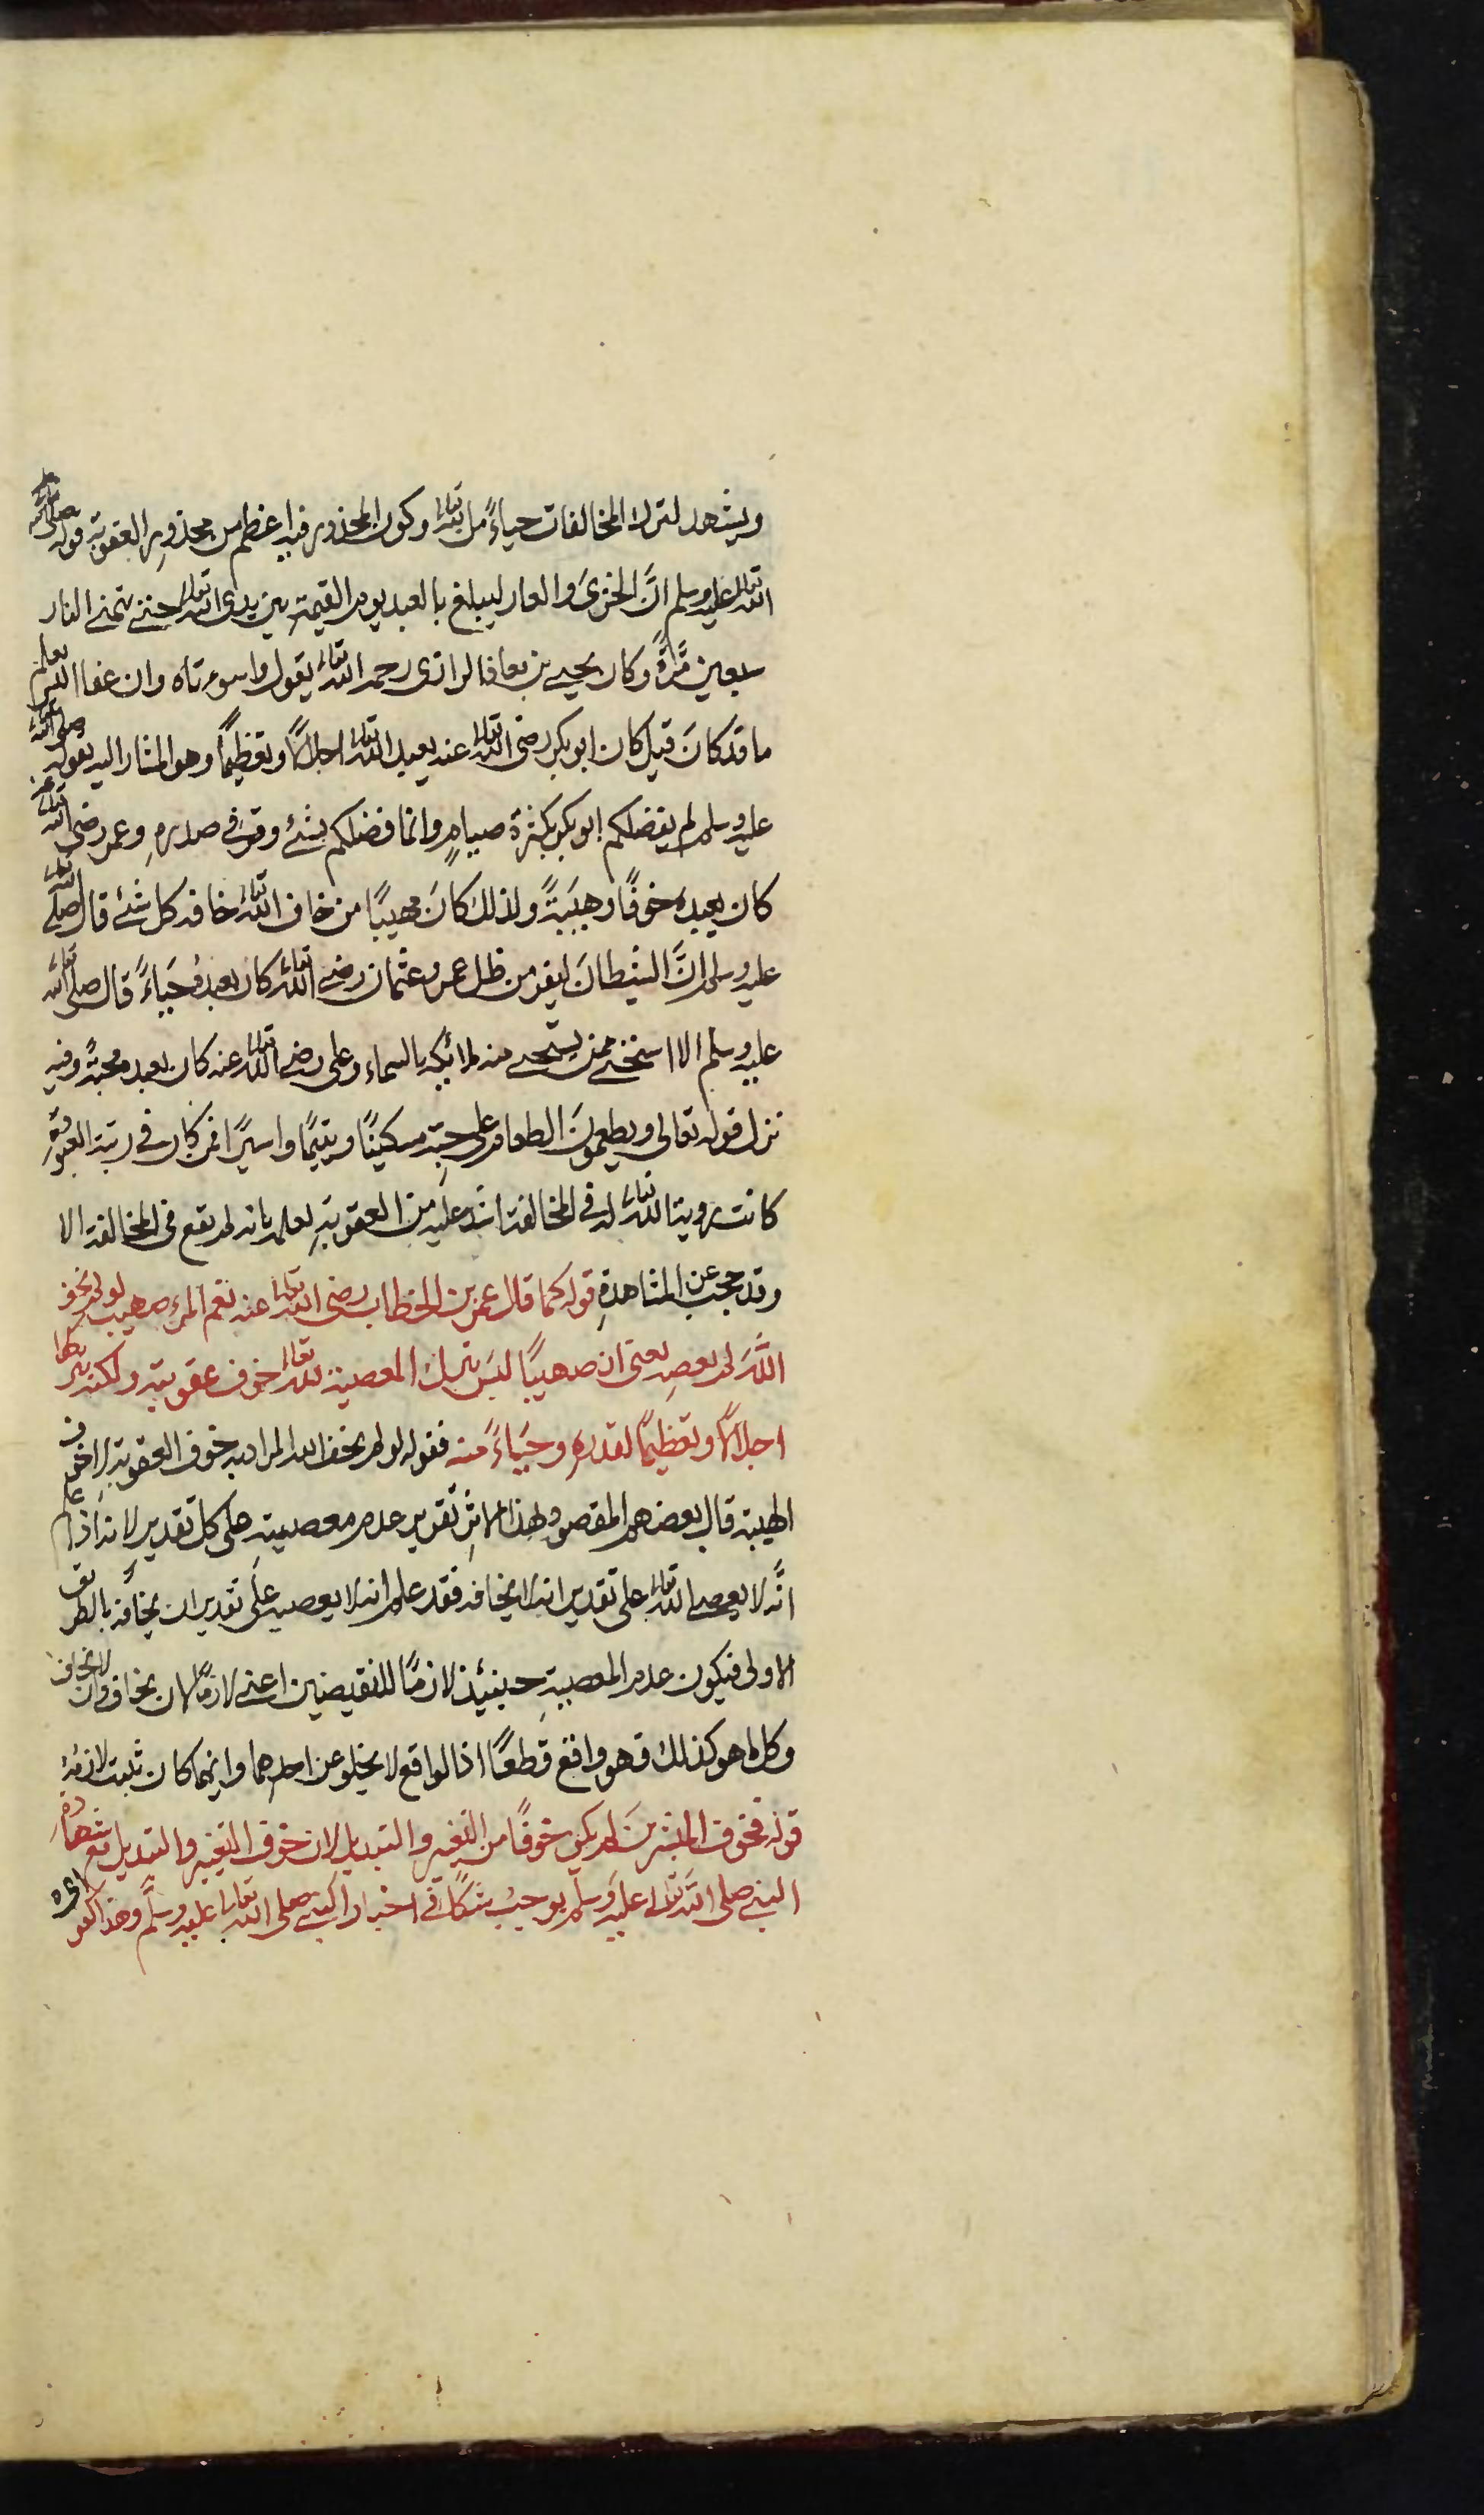 ويشهد لترك المخالفات حياءً من الله تعالى وكون المحذور فيه اعظم من محذور العقوبة قوله صلى
الله تعالى عليه وسلم انَّ الخزىَ والعار ليبلغ بالعبد يوم القيمة بين يدى الله تعالى حتى يتمنى النار
سبعين مرَّةً وكان يحيى بن معاذ الرازى رحمه الله تعالى يقول واسوءتاه وان عفا اليس يعلم
ما قد كانَ قيل كان ابو بكر رضى الله تعالى عنه يعبد الله تعالى اجلالاً وتعظيمًا وهو المشار اليه بقوله صلى الله تعالى
عليه وسلم لم يفضلكم ابو بكر بكثرة صيامٍ وانما فضلكم بشئ وقر فى صدرهِ وعمر رضى الله تعالى عنه
كان يعبده خوفًا وهيبَةً ولذلك كانَ مهيبًا من خاف الله تعالى خافه كل شئ قال صلى الله تعالى
عليه وسلم انَّ الشيطانَ ليفر من ظل عمر وعثمان رضى الله تعالى كان يعبدهُ حَيَاءً قال صلى الله تعالى
عليه وسلم الا استحيى ممن يستحيى منه ملائكة السماء وعلى رضى الله تعالى عنه كان يعبده محبةً وفيه
نزل قوله تعالى ويطعمونَ الطعام على حبّهِ مسكينًا ويتيمًا واسيرًا فمن كان فى رتبة العبودة
كانت رؤية الله تعالى له فى المخالفة اشدّ عليه من العقوبةِ لعلمه بانه لم يقع فى المخالفة الا
وقد حجب عن المشاهدةِ قوله كما قال عمر بن الخطاب رضى الله تعالى عنه نعم المرء صهيب لو لم يخف
اللَّهَ لم يعصِه يعنى ان صهيبًا ليسَ يترك المعصية لله تعالى خوف عقوبته ولكنه يتركها
اجلالاً وتعظيمًا لقدره وحيَاءً منه فقوله لو لم يخف الله المراد به خوف العقوبة لا خوف
الهيبة قال بعضهم المقصود بهذا الاثرِ تقرير عدم معصيتهِ على كل تقدير لانه اذا علم
انَّه لا يعصى الله تعالى على تقدير انه لا يخافه فقد علم انه لا يعصيه على تقدير ان يخافَه بالطريق
الاولى فيكون عدم المعصيةِ حينئذ لازمًا للنقيضين اعنى لازمًا لان يخاف وان لا يخاف
وكل ما هو كذلك فهو واقع قطعًا اذ الواقع لا يخلو عن احدهما وايهما كان ثبت لازمهُ
قوله فخوف المبشرينَ لم يكن خوفًا من التغير والتبديل لان خوف التغيير والتبديل مع شهادة
النبى صلى الله تعالى عليه وسلم يوجبُ شكًا فى اخبار النبى صلى الله تعالى عليه وسلَّم وهذا كفر